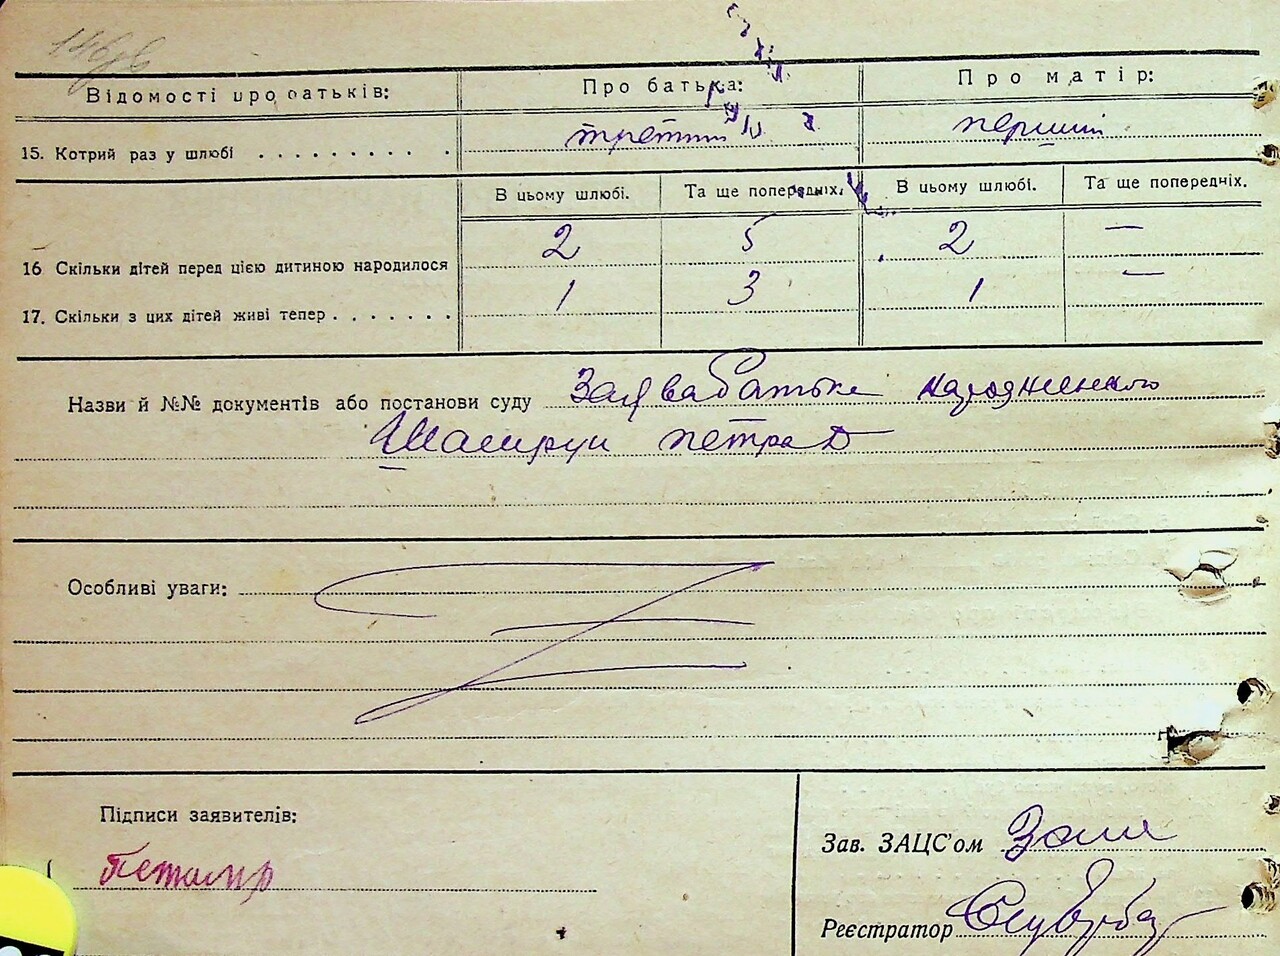 Відомості про батьків: Про батька: Про матір:
15. Котрий раз у шлюбі . . . . . . . . . третий перший
В цьому шлюбі. Та ще попередніх. В цьому шлюбі. Та ще попередніх.
16 Скільки дітей перед цією дитиною народилося 2 5 2 —
17. Скільки з цих дітей живі тепер . . . . . . . 1 3 1 —
Назви й №№ документів або постанови суду Заява батька
петра
Особливі уваги:
Підписи заявителів:
Зав. ЗАЦС'ом
Реєстратор